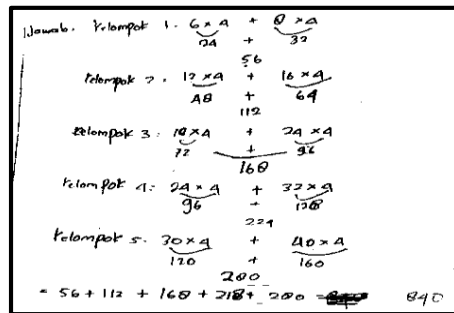 Jawab. Kelompok 1. 6 x 4 + 8 x 4
24 + 32
56
Kelompok 2. 12 x 4 + 16 x 4
48 + 64
112
Kelompok 3. 18 x 4 + 24 x 4
72 + 96
168
Kelompok 4. 24 x 4 + 32 x 4
96 + 128
224
Kelompok 5. 30 x 4 + 40 x 4
120 + 160
280
= 56 + 112 + 168 + 218 + 280 = 840